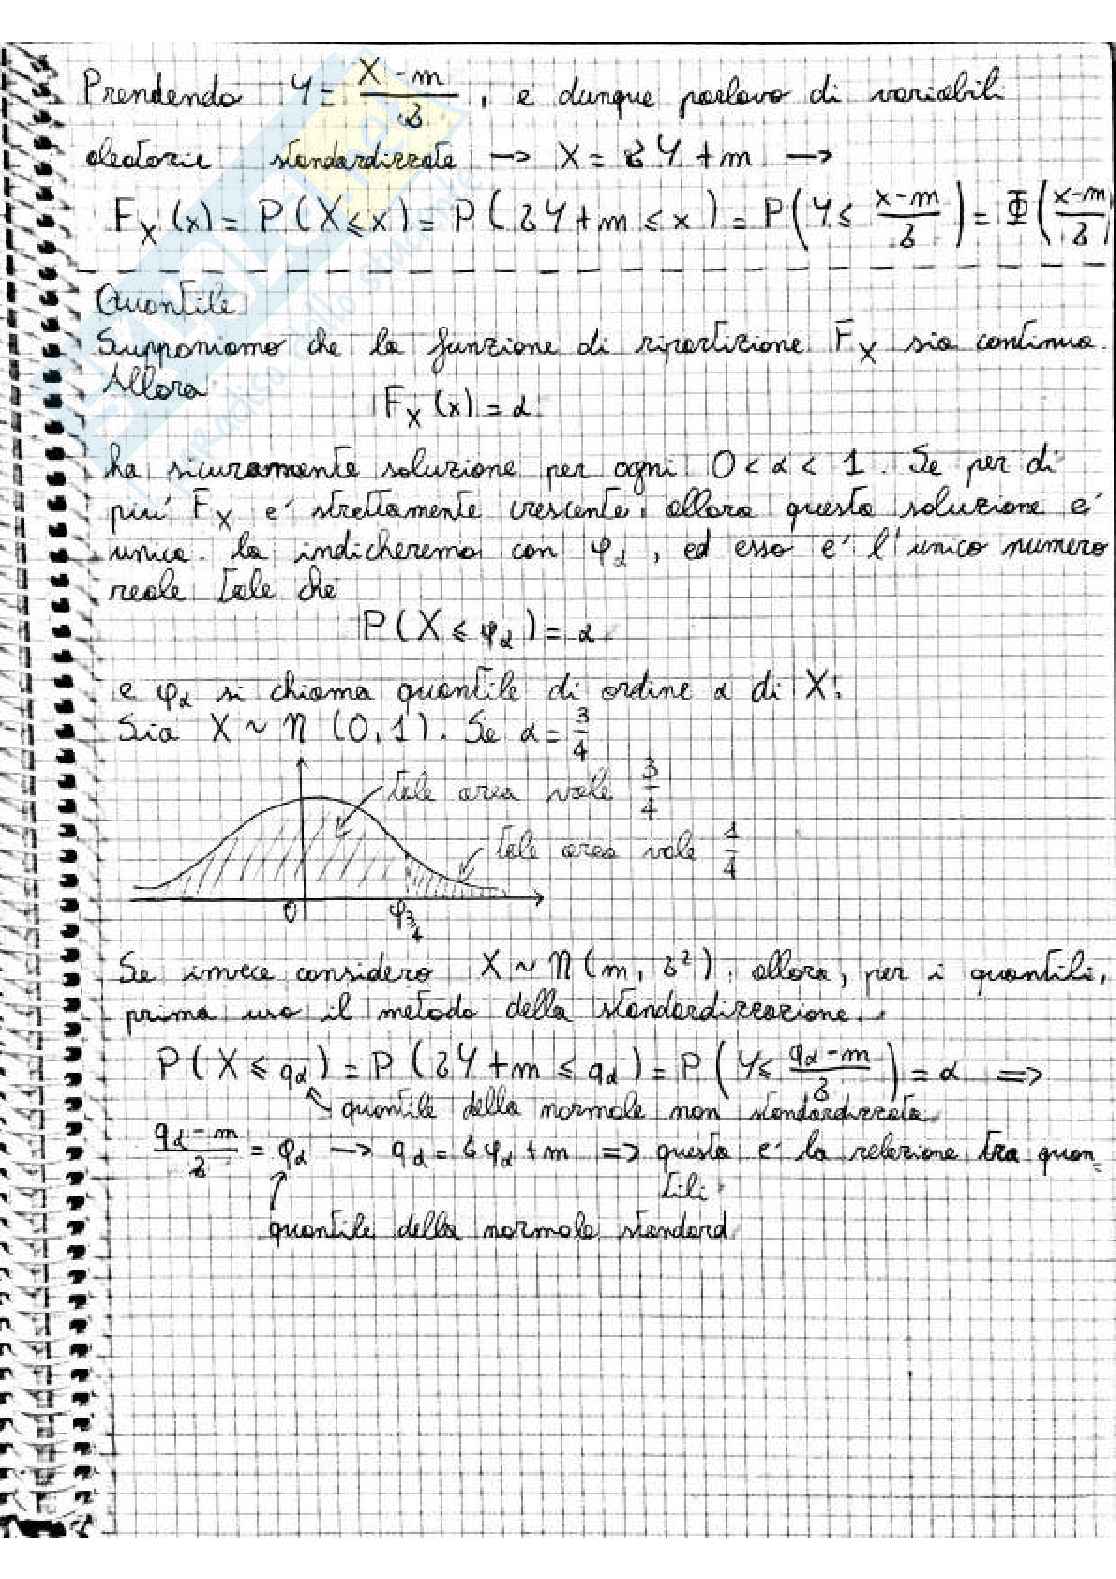 Prendendo Y = (X - m)/σ, e dunque parlavo di variabili
aleatorie standardizzate → X = σY + m →
F_X (x) = P(X ≤ x) = P(σY + m ≤ x) = P(Y ≤ (x-m)/σ) = Φ((x-m)/σ)
Quantile
Supponiamo che la funzione di ripartizione F_X sia continua.
Allora
F_X (x) = α
ha sicuramente soluzione per ogni 0 < α < 1. Se per di
piu' F_X e' strettamente crescente, allora questa soluzione e'
unica. La indicheremo con φ_α, ed esso e' l'unico numero
reale tale che
P(X ≤ φ_α) = α
e φ_α si chiama quantile di ordine α di X:
Sia X ~ N (0,1). Se α = 3/4
tale area vale 3/4
tale area vale 1/4
0 φ_3/4
Se invece considero X ~ N(m, σ²), allora, per i quantili,
prima uso il metodo della standardizzazione.
P(X ≤ q_α) = P(σY + m ≤ q_α) = P(Y ≤ (q_α - m)/σ) = α ⇒
quantile della normale non standardizzata
(q_α - m)/σ = φ_α → q_α = σφ_α + m ⇒ questa e' la relazione tra quan-
tili.
quantile della normale standard